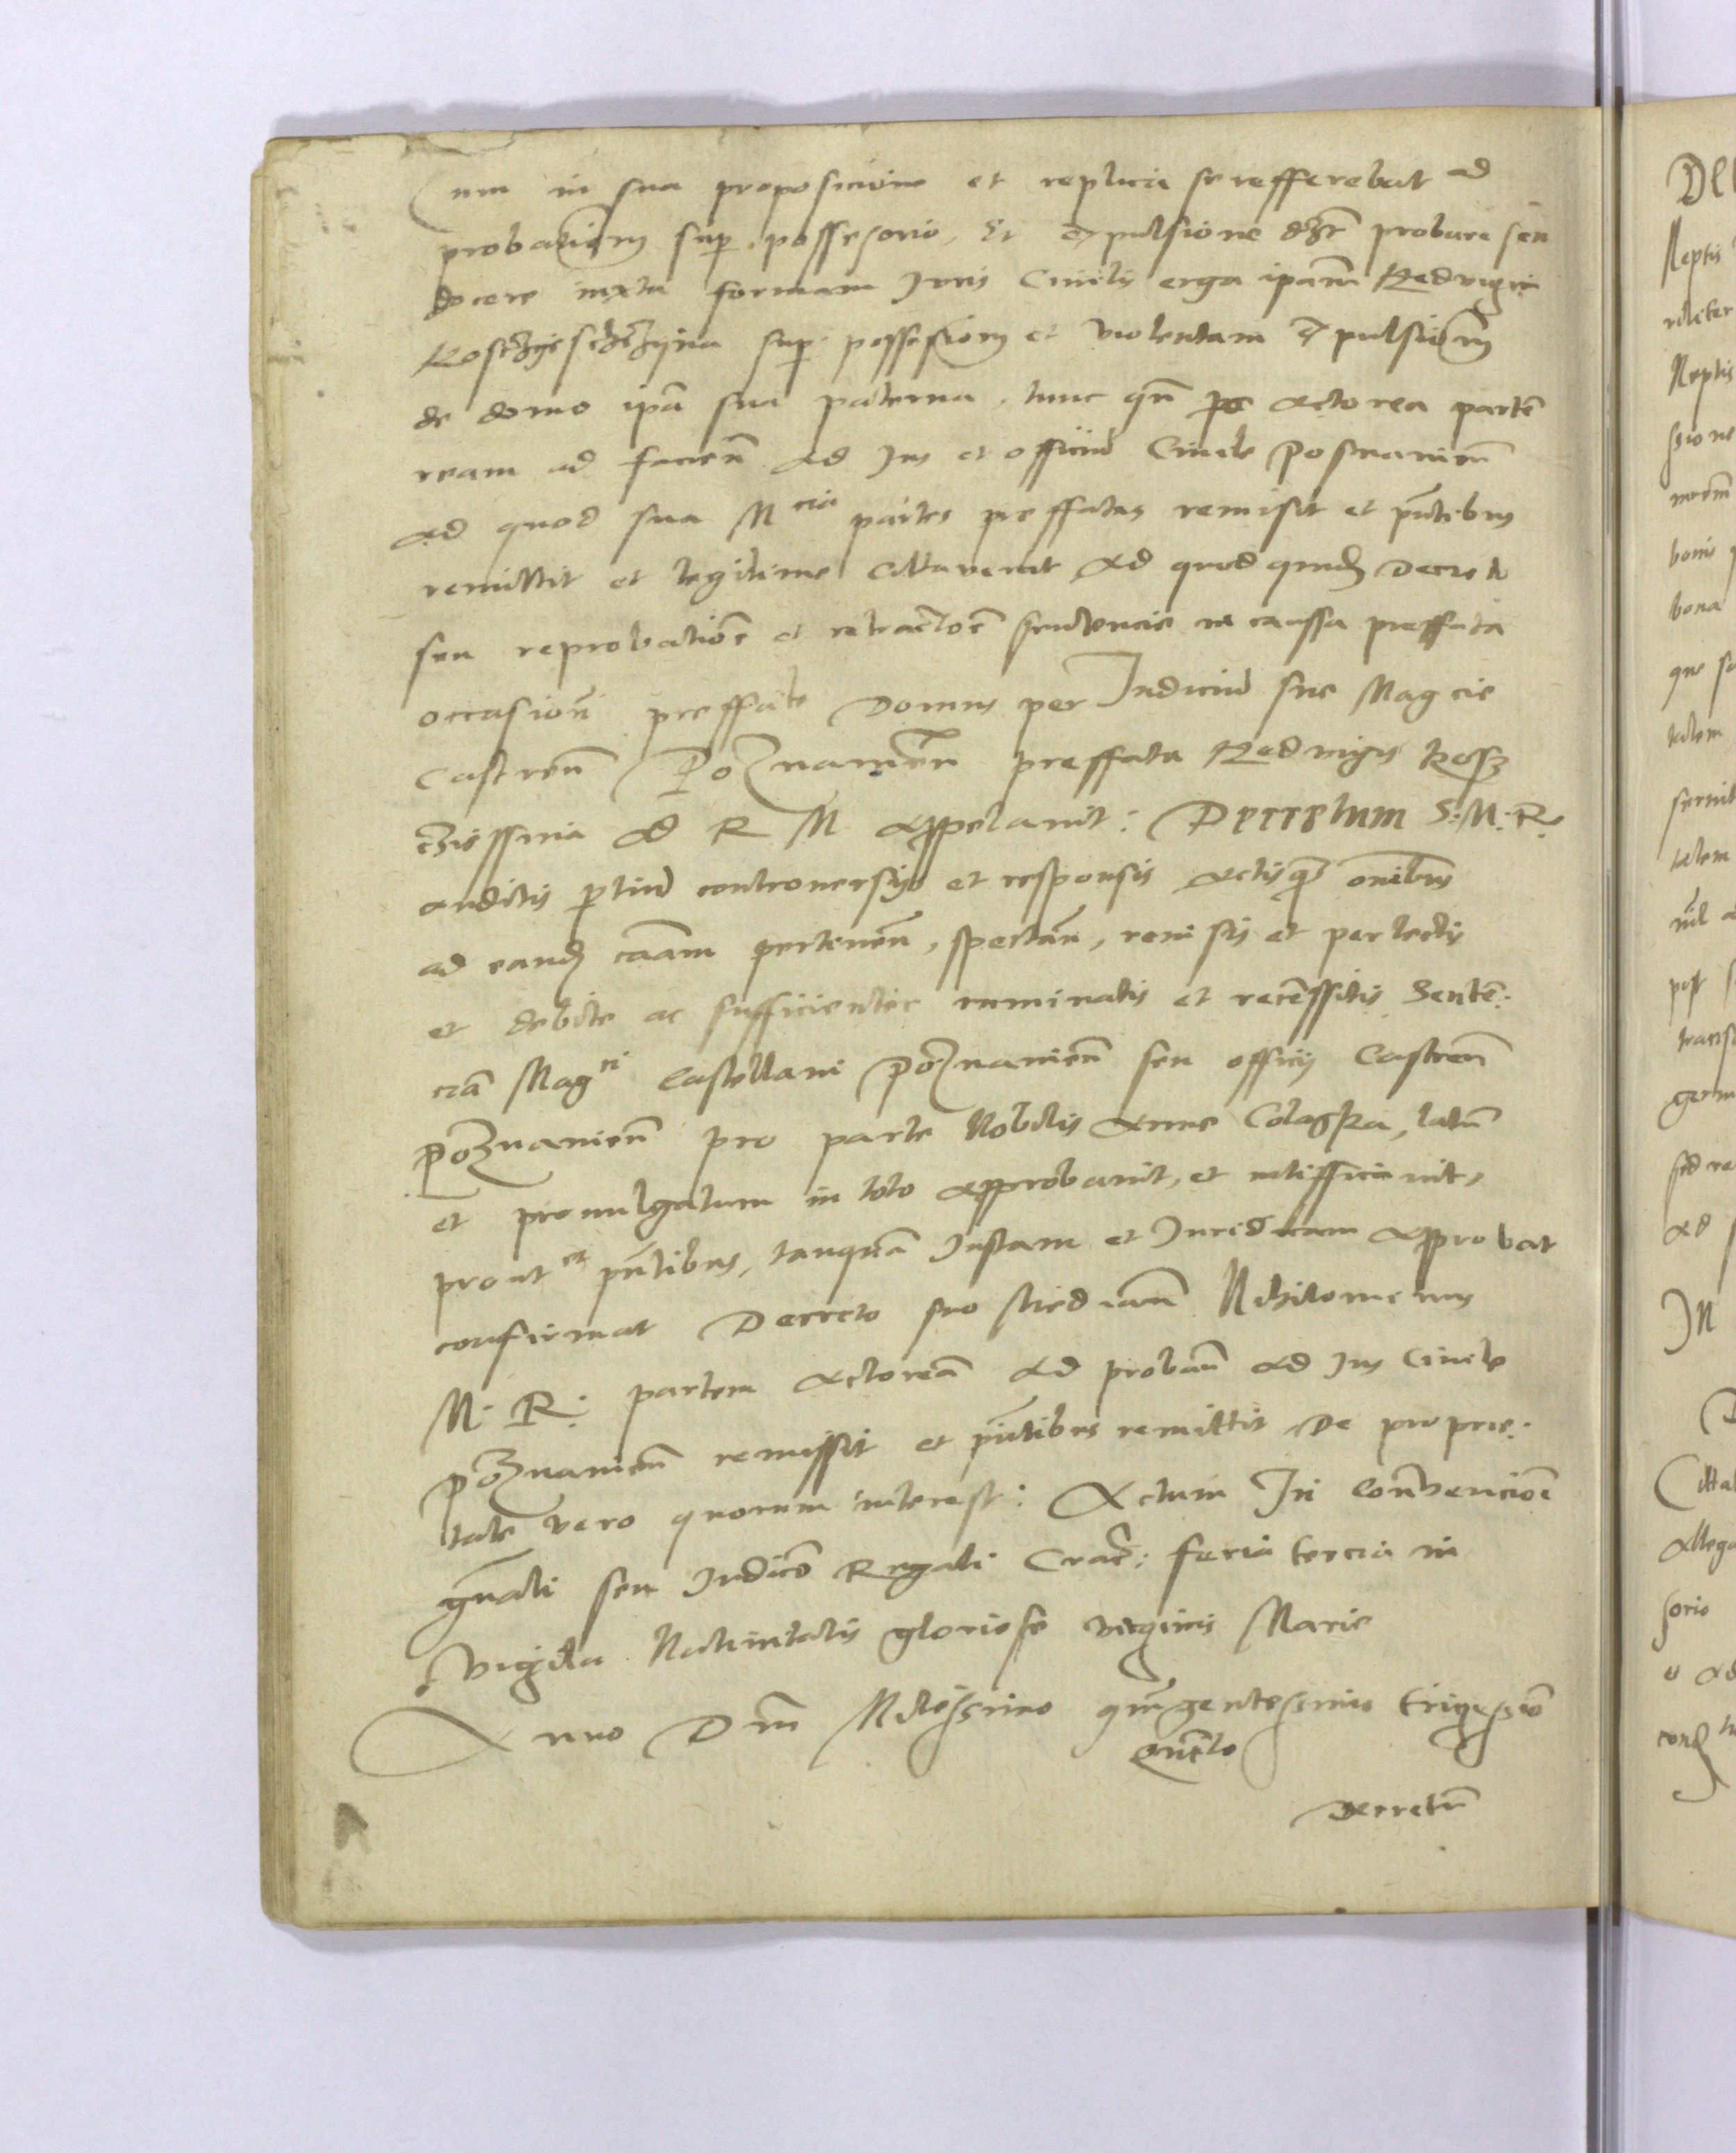 um in sua proposicione et replica se refferebat ad
probationem super possessorio, Et expulsione debet probare seu
docere iuxta formam Juris Civilis erga ipsam Hedvigim
super possessionem et violentam expulsionem
de domo ipsa sua paterna, tunc qn̄ actorea partem
ream ad facien̄ ad Jus et officiū Civile Posnanien̄
ad quod sua Mcia partes preffatas remisit et pn̄tibus
remittit et legitime citaverit Ad quod quidem Decretū
seu reprobationē et retractionē sentencie in caussa preffata
occasion̄ preffate Domus per Judiciū sue Magcie
Castren̄ Poznamien̄ preffata Hedvigis Kosz
ad R M appelavit: Decretum S. M. R.
auditis partiū controversijs et responsis actisque onībus
ad eandem caām pertinen̄, spectan̄, revisis et perlectis
et debite ac sufficienter ruminatis et recenssitis Senten:
ciā Magci Castellani Poznanien̄ seu officij Castren̄
Poznanien̄ pro parte Nobilis Anne Colaska, latum
et promulgatum in toto approbavit, et ratifficavit,
prout et pn̄tibus, tanquā Justam et Juridicam approbat
confirmat Decreto suo median̄ Nihilominus
M. R. partem actoreā ad proban̄ ad Jus Civile
Poznanien̄ remissit et pn̄tibus remittit De proprie:
tate vero quorum interest: Actum In Convencione
gn̄ali seu Judicio Regali Crac: feria tercia in
vigilia Nativitatis gloriose virginis Marie
Anno Dn̄i Milessimo quingentessimo trigessimo
quīto
Decretū